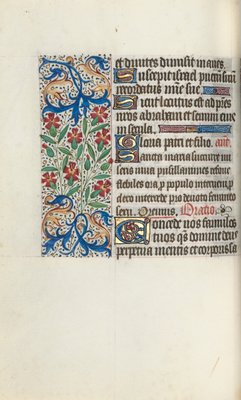 et divites dimisit inanes.
Suscepit israel puerum suum
recordatus mĩe sue.
Sicut locutus est ad pr̃es
nr̃os abraham et semini eius
in secula.
Gloria patri et filio. ant.
Sancta maria succurre mi
seris iuva pusillanimes refove
flebiles ora p̱ populo interveni p̱
clero intercede pro devoto femineo
sexu. Oremus. Oratio.
Concede nos famulos
tuos q̃s domine deus
perpetua mentis et corporis sa